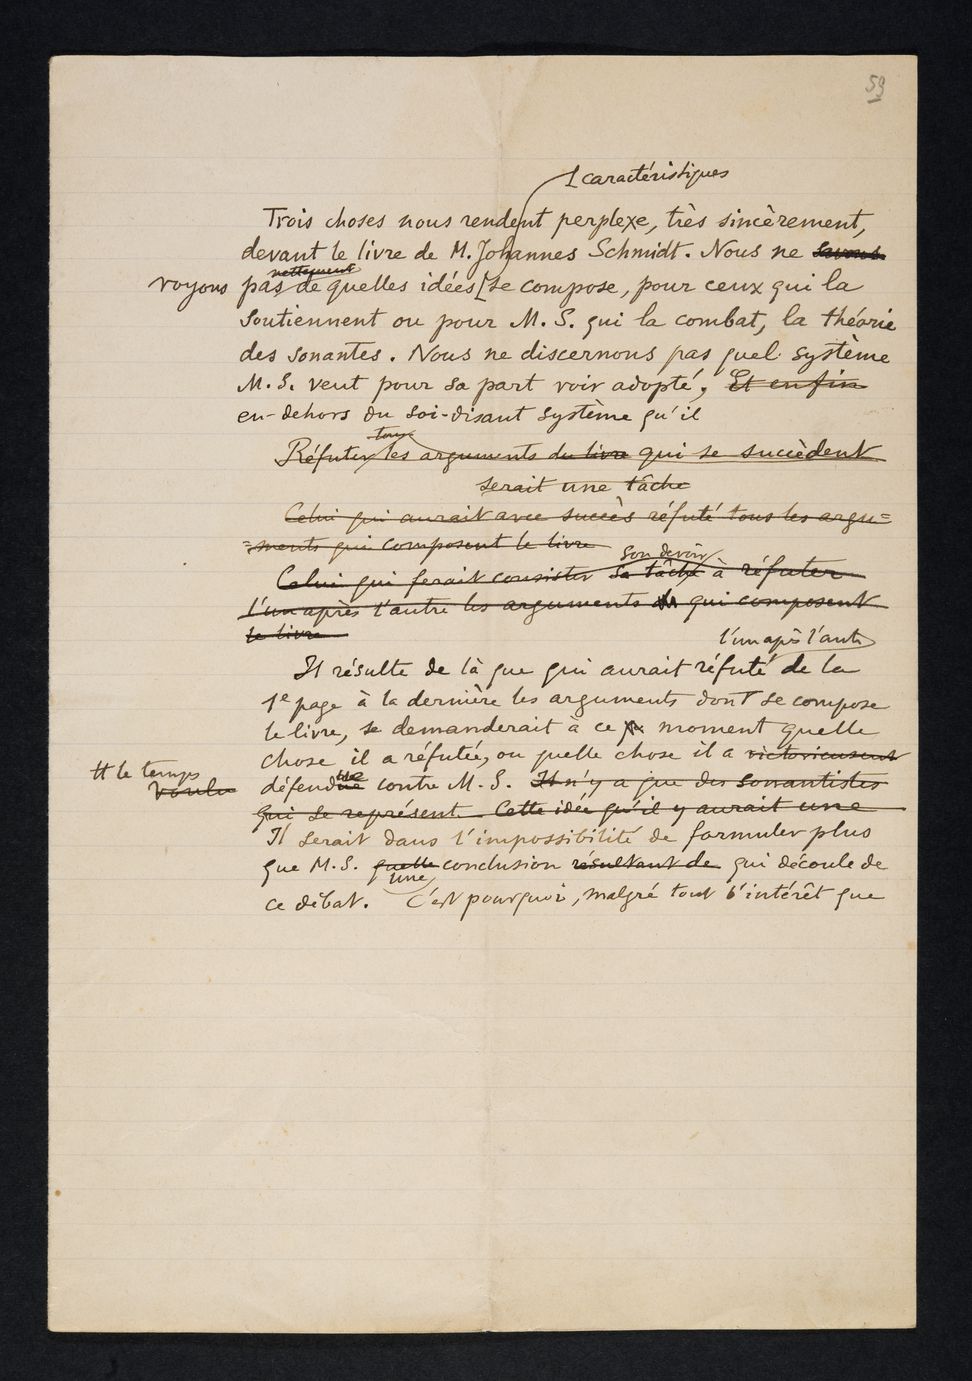 59
caractéristiques
Trois choses nous rendent perplexe, très sincèrement,
devant le livre de M. Johannes Schmidt. Nous ne savons
nettement
voyons pas de quelles idées [se compose, pour ceux qui la
soutiennent ou pour M. S. qui la combat, la théorie
des sonantes. Nous ne discernons pas quel système
M. S. veut pour sa part voir adopté, Et enfin
en-dehors du soi-disant système qu'il
tous
Réfuter les arguments du livre qui se succèdent
serait une tâche
Celui qui aurait avec succès réfuté tous les argu=
=ments qui composent le livre
son devoir
Celui qui ferait consister sa tâche à réfuter
l'un après l'autre les arguments qui composent
le livre
l'un aps l'autr
Il résulte de là que qui aurait réfuté de la
1e page à la dernière les arguments dont se compose
le livre, se demanderait à ce moment quelle
chose il a réfutée, ou quelle chose il a victorieusent
tt le temps
voulu
défendue contre M. S. Il n'y a que des sonantistes
qui se représent. Cette idée qu'il y aurait une
Il serait dans l'impossibilité de formuler plus
que M. S. quelle conclusion résultant de qui découle de
une
ce débat. C'est pourquoi, malgré tout l'intérêt que